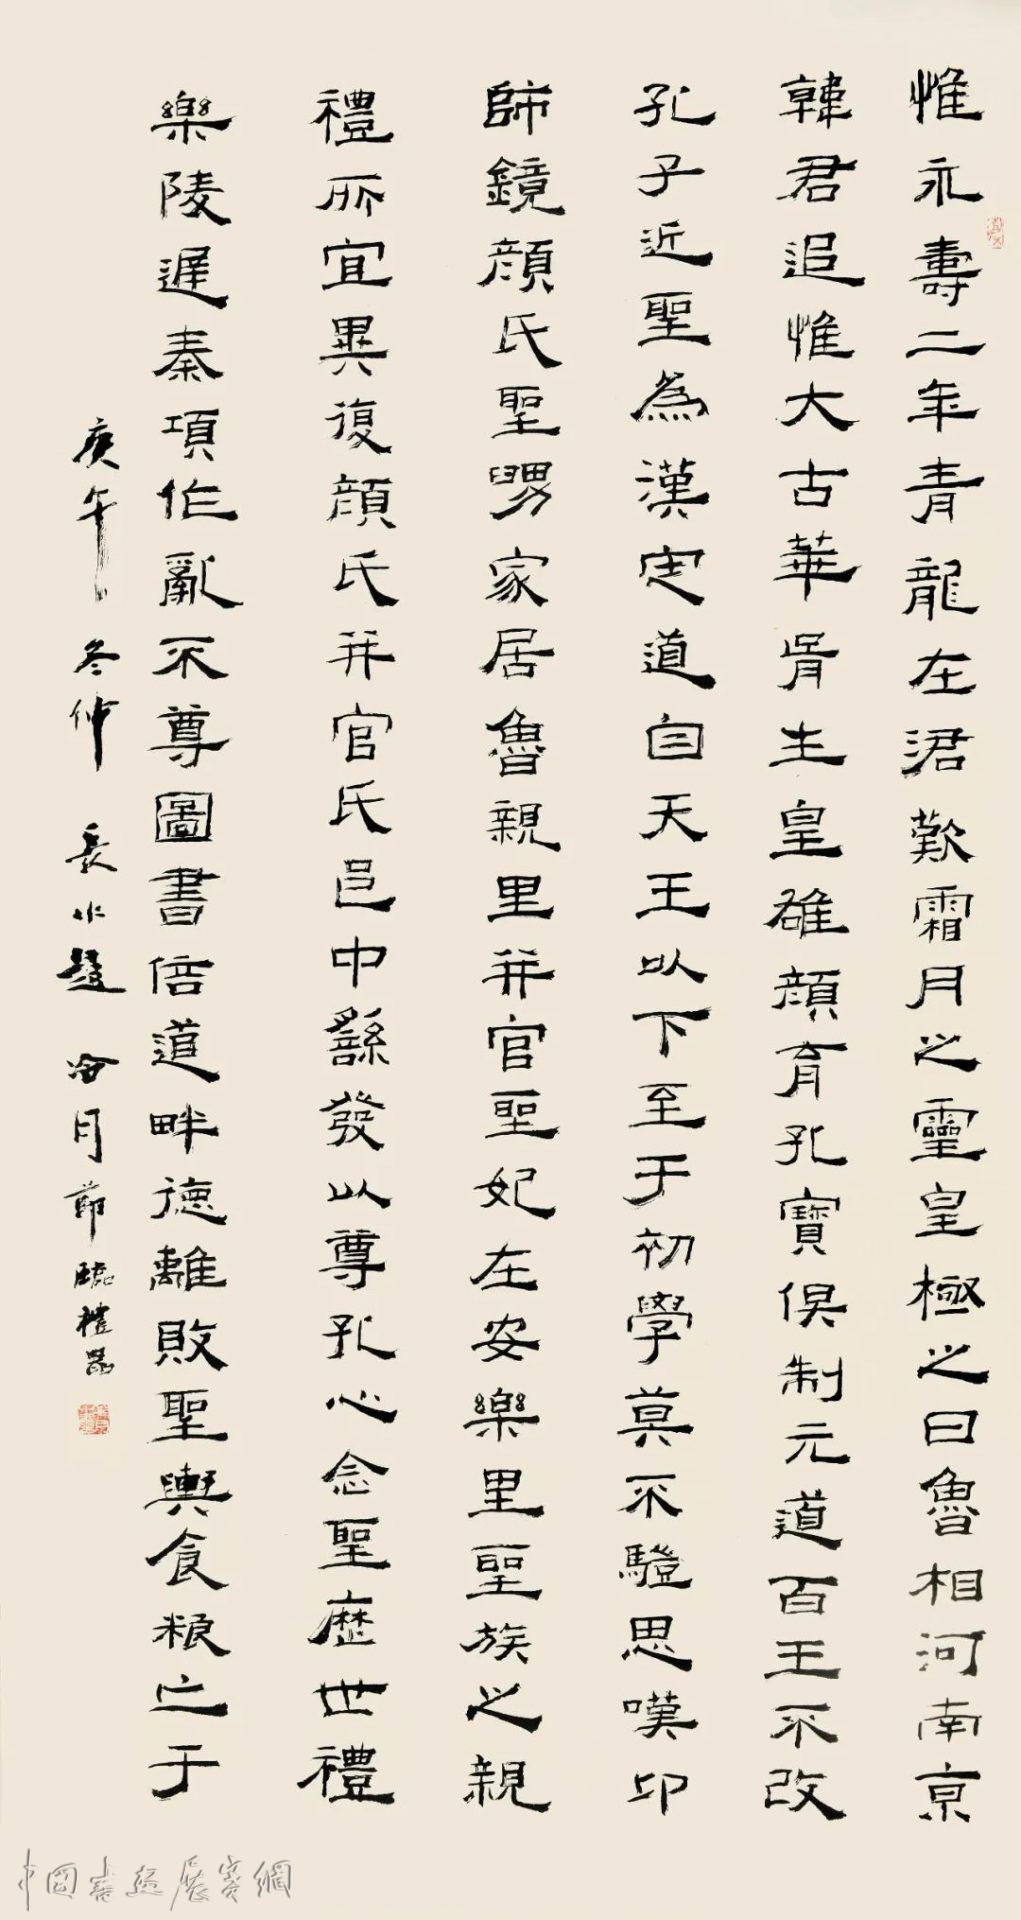 惟永壽二年青龍在涒歎霜月之靈皇極之日魯相河南京
韓君追惟大古華胥生皇雄顏育孔寶俱制元道百王不改
孔子近聖為漢定道自天王以下至于初學莫不驗思嘆卬
師鏡顏氏聖舅家居魯親里并官聖妃在安樂里聖族之親
禮所宜異復顏氏并官氏邑中繇發以尊孔心念聖歷世禮
樂陵遲秦項作亂不尊圖書倍道畔德離敗聖輿食粮亡于
庚午冬仲長水冷月節臨禮器
中國書畫展賽網